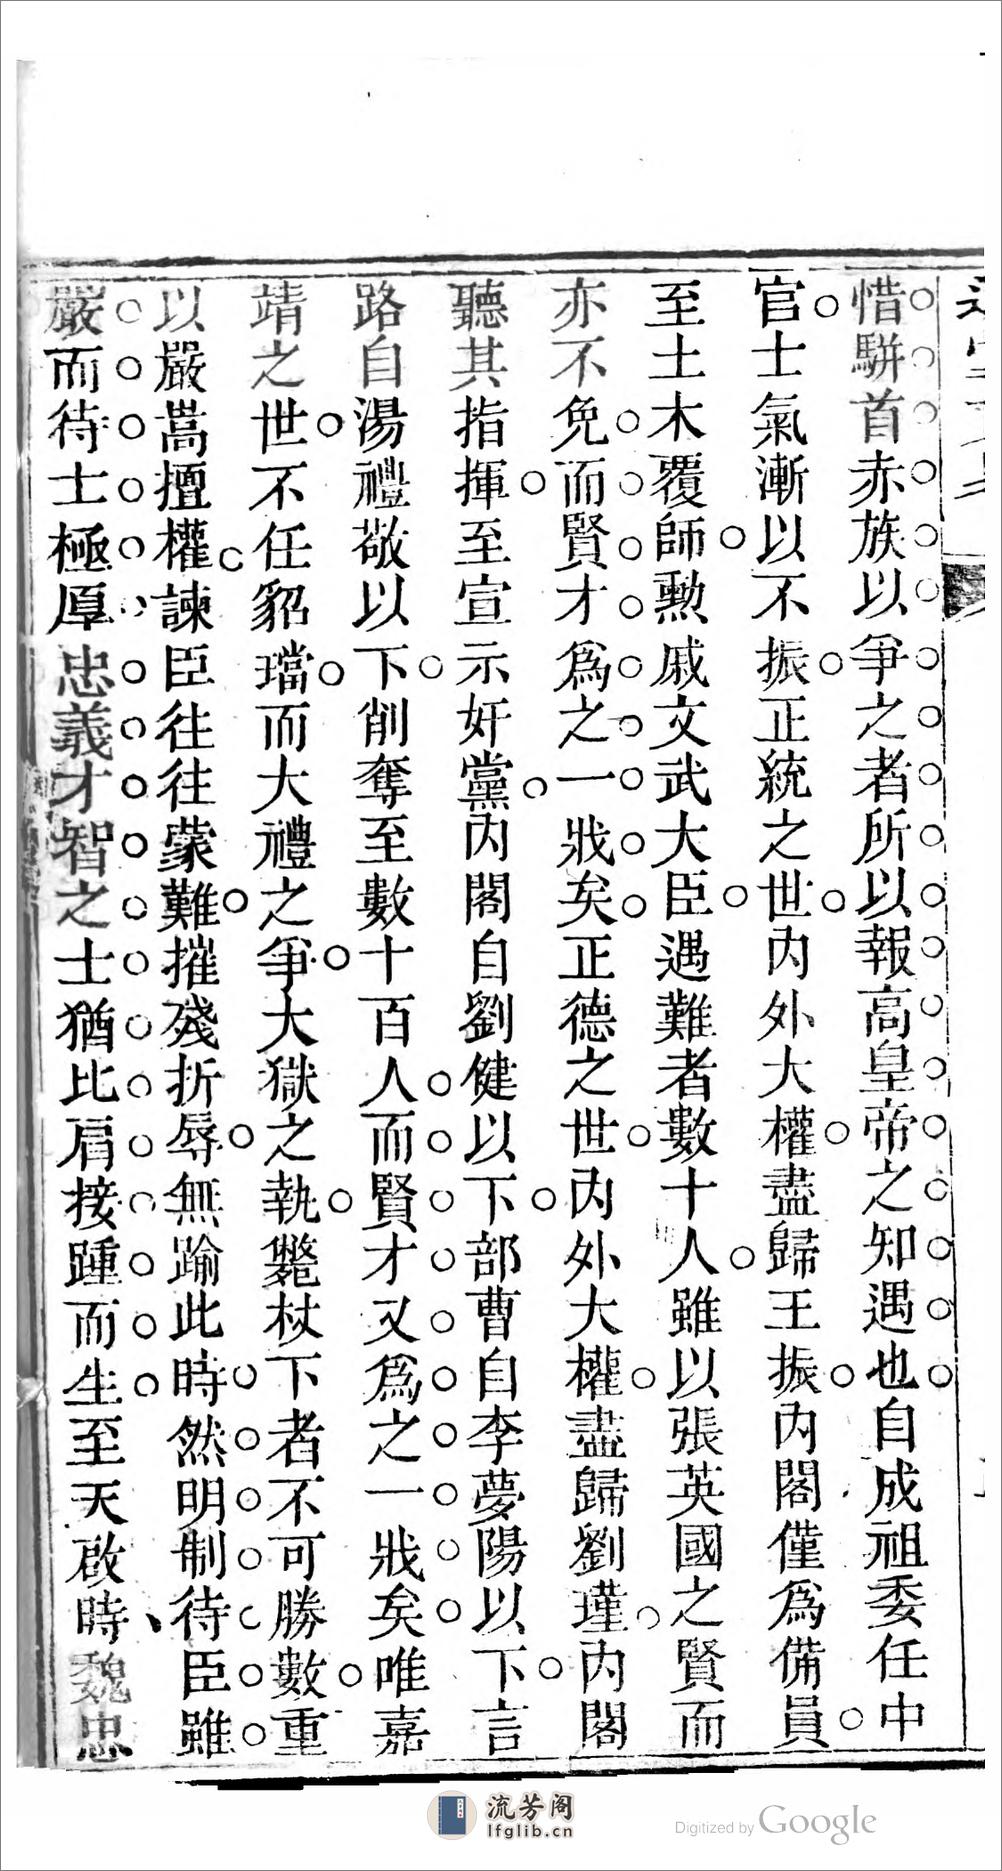 惜駢首赤族以爭之者所以報高皇帝之知遇也自成祖委任中
官士氣漸以不振正統之世內外大權盡歸王振內閣僅爲備員
至土木覆師勲戚文武大臣遇難者數十人雖以張英國之賢而
亦不免而賢才爲之一戕矣正德之世內外大權盡歸劉瑾內閣
聽其指揮至宣示奸黨內閣自劉健以下部曹自李夢陽以下言
路自湯禮敬以下削奪至數十百人而賢才又爲之一戕矣唯嘉
靖之世不任貂璫而大禮之爭大獄之執斃杖下者不可勝數重
以嚴嵩擅權諫臣往往蒙難摧殘折辱無踰此時然明制待臣雖
嚴而待士極厚忠義才智之士猶比肩接踵而生至天啟時魏忠
流芳阁
lfglib.cn
Digitized by Google